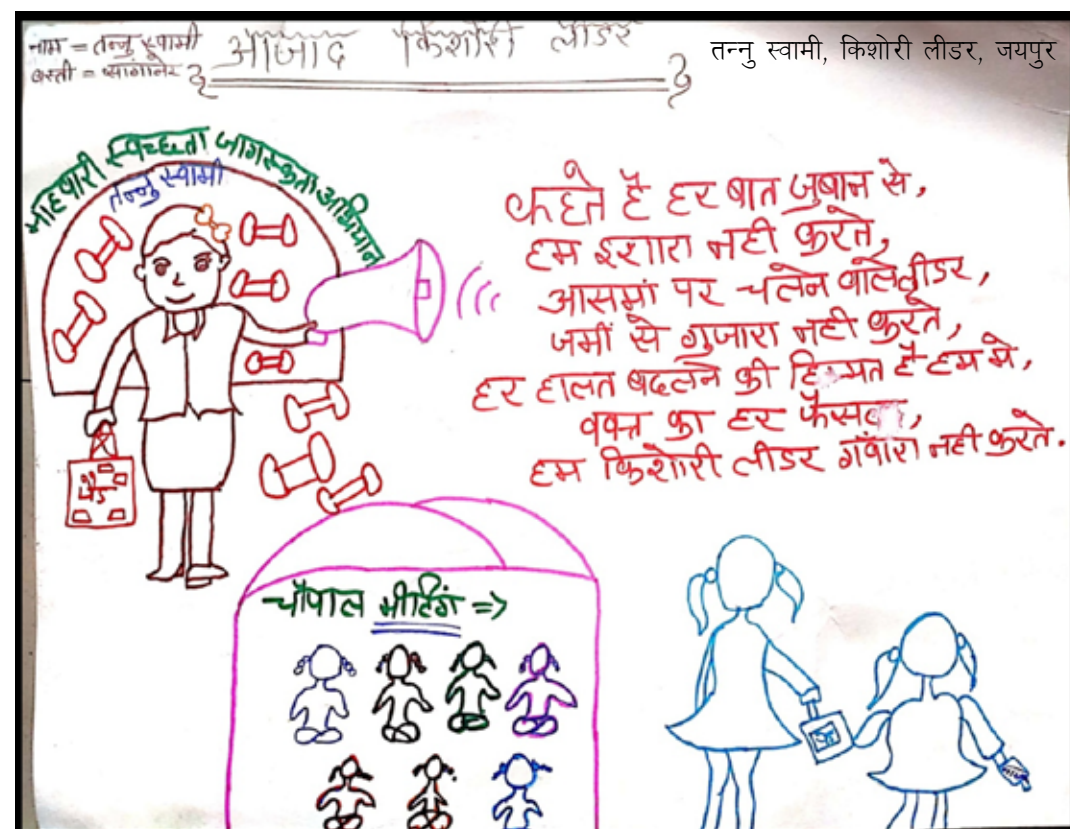 नाम = तन्नु स्वामी
बस्ती = सांगानेर
आजाद किशोरी लीडर
तन्नु स्वामी, किशोरी लीडर, जयपुर
माहवारी स्वच्छता जागरूकता अभियान
तन्नु स्वामी
कहते है हर बात जुबान से,
हम इशारा नही करते,
आसमां पर चलने वाले लीडर,
जमीं से गुजारा नही करते,
हर हालत बदलने की हिम्मत है हम मे,
वक्त का हर फैसला,
हम किशोरी लीडर गँवारा नही करते.
पैड
चौपाल मीटिंग =>